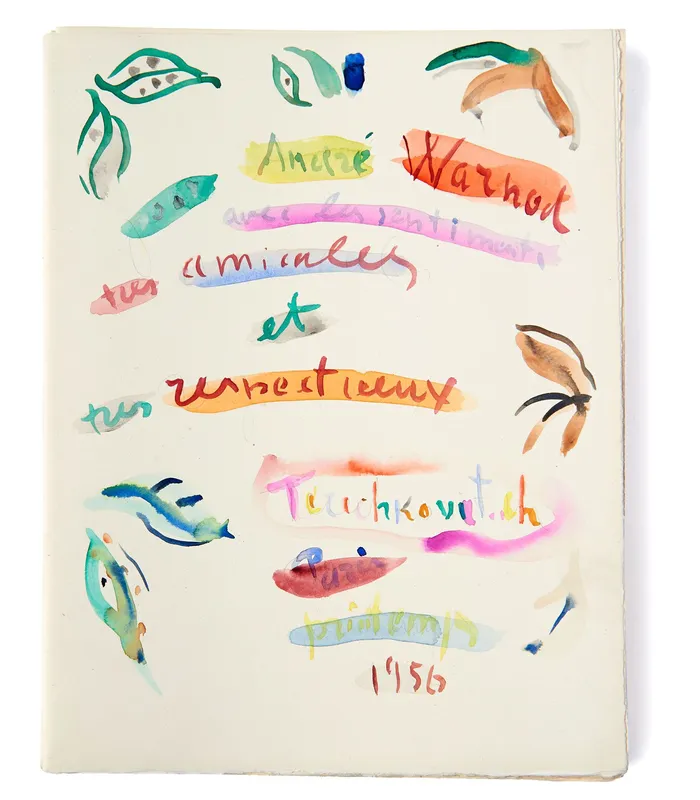 André Warnod
avec les sentiments
tres amicales
et
tres respectieux
Terechkovitch
Paris
printemps
1956